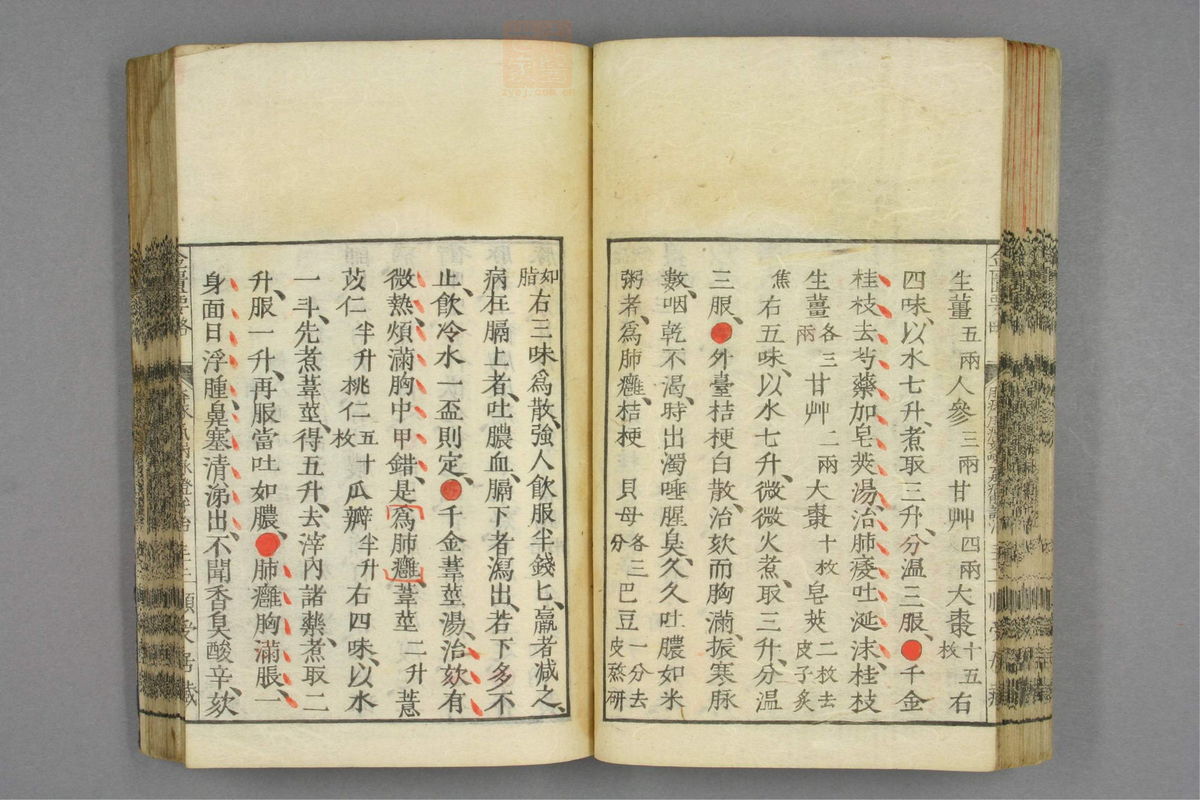 生薑五兩人參三兩甘艸四兩大棗十五枚右
四味、以水七升、煮取三升、分溫三服、●千金
桂枝去芍藥加皂莢湯、治肺痿吐涎沫、桂枝
生薑各三兩甘艸二兩大棗十枚皂莢二枚去皮子炙
焦右五味、以水七升、微微火煮、取三升、分溫
三服、●外臺桔梗白散、治欬而胸滿、振寒脉
數、咽乾不渴、時出濁唾腥臭、久久吐膿如米
粥者、爲肺癰、桔梗貝母各三分巴豆一分去皮熬研
如脂右三味爲散、強人飲服半錢匕、羸者减之、
病在膈上者、吐膿血、膈下者瀉出、若下多不
止、飲冷水一盃則定、●千金葦莖湯、治欬有
微熱、煩滿胸中甲錯、是爲肺癰、葦莖二升薏
苡仁半升桃仁五十枚瓜瓣半升右四味、以水
一斗、先煮葦莖、得五升、去滓內諸藥、煮取二
升、服一升、再服當吐如膿、●肺癰胸滿脹、一
身面目浮腫、鼻塞清涕出、不聞香臭酸辛、欬